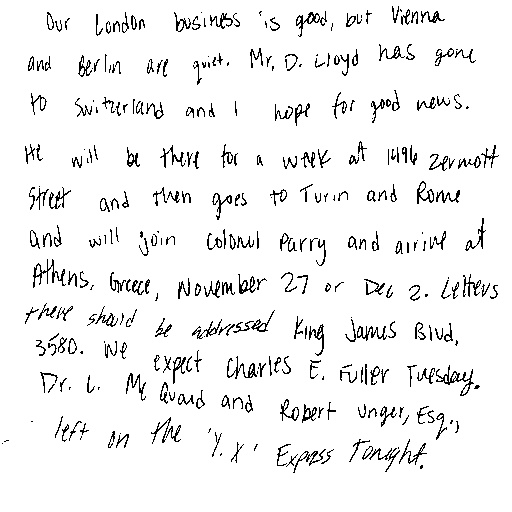 Our London business is good, but Vienna
and Berlin are quiet. Mr. D. Lloyd has gone
to Switzerland and I hope for good news.
He will be there for a week at 1496 Zermott
Street and then goes to Turin and Rome
and will join Colonel Parry and arrive at
Athens, Greece, November 27 or Dec 2. Letters
there should be addressed King James Blvd,
3580. We expect Charles E. Fuller Tuesday.
Dr. L. Mc Quaid and Robert Unger, Esq.,
left on the 'Y.X' Express Tonight.